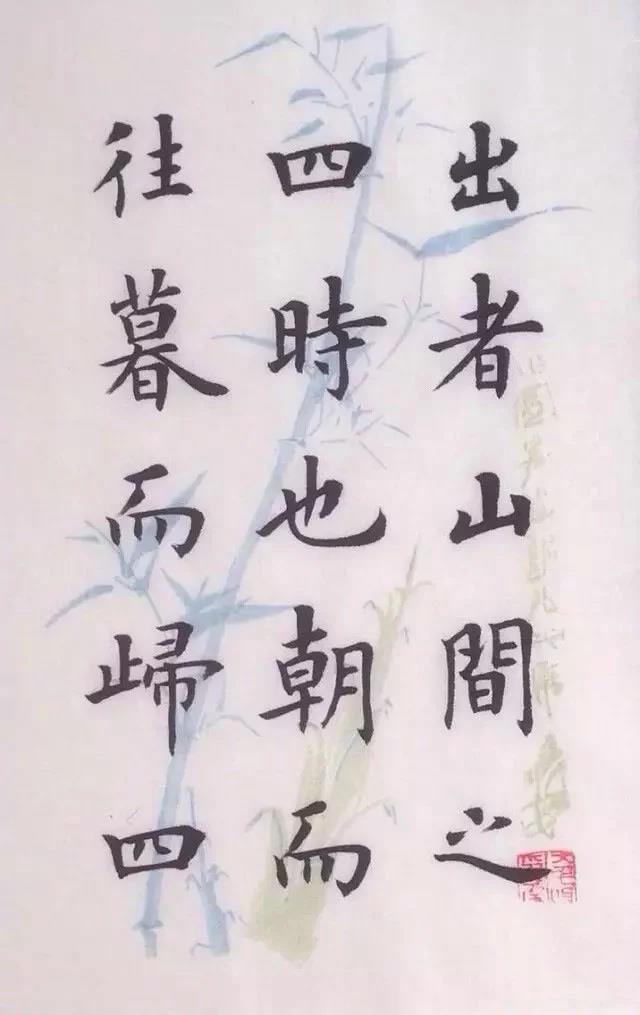 出者山間之
四時也朝而
往暮而歸四